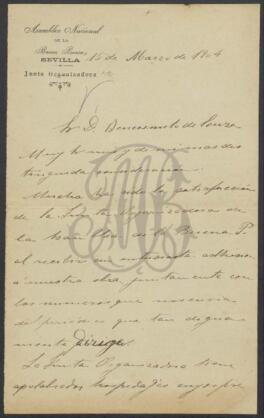 Asamblea Nacional
DE LA
Buena Prensa
SEVILLA
Junta Organizadora
15 de Marzo de 1904
Sr. D. Benevenuto de Souza
Muy Sr. mio y de mi mas dis
tinguida consideracion:
Mucha ha sido la satisfaccion
de la Junta Organizadora de
la Asamblea de la Buena P.
al recibir su entusiasta adhesion
a nuestra obra, juntamente con
los numeros que nos envia
del periodico que tan digna
mente dirige.
La Junta Organizadora tiene